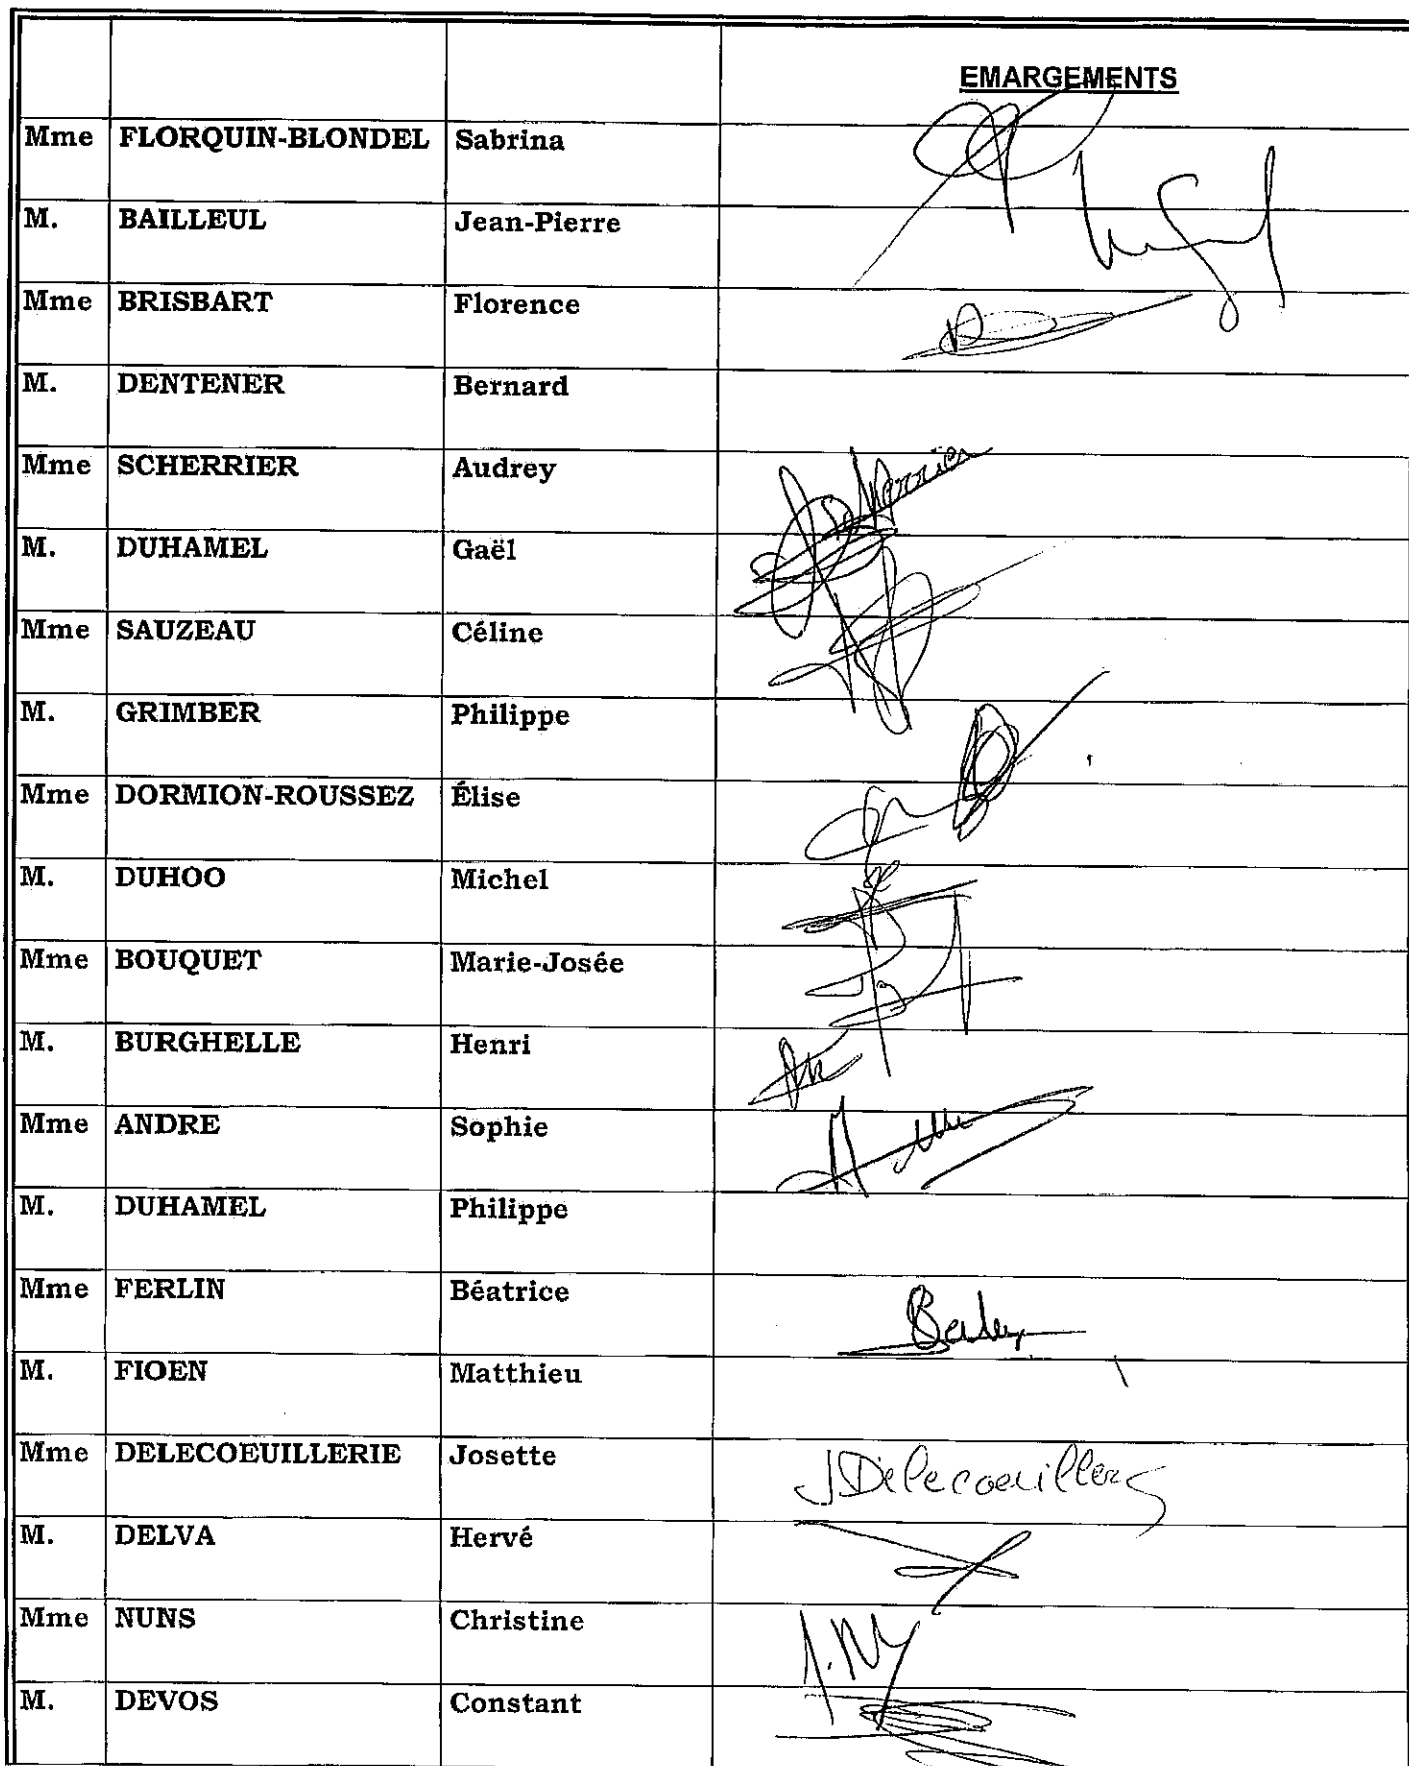 EMARGEMENTS
Mme FLORQUIN-BLONDEL Sabrina
M. BAILLEUL Jean-Pierre
Mme BRISBART Florence
M. DENTENER Bernard
Mme SCHERRIER Audrey
M. DUHAMEL Gaël
Mme SAUZEAU Céline
M. GRIMBER Philippe
Mme DORMION-ROUSSEZ Élise
M. DUHOO Michel
Mme BOUQUET Marie-Josée
M. BURGHELLE Henri
Mme ANDRE Sophie
M. DUHAMEL Philippe
Mme FERLIN Béatrice
M. FIOEN Matthieu
Mme DELECOEUILLERIE Josette JDelecoeuillerie
M. DELVA Hervé
Mme NUNS Christine
M. DEVOS Constant